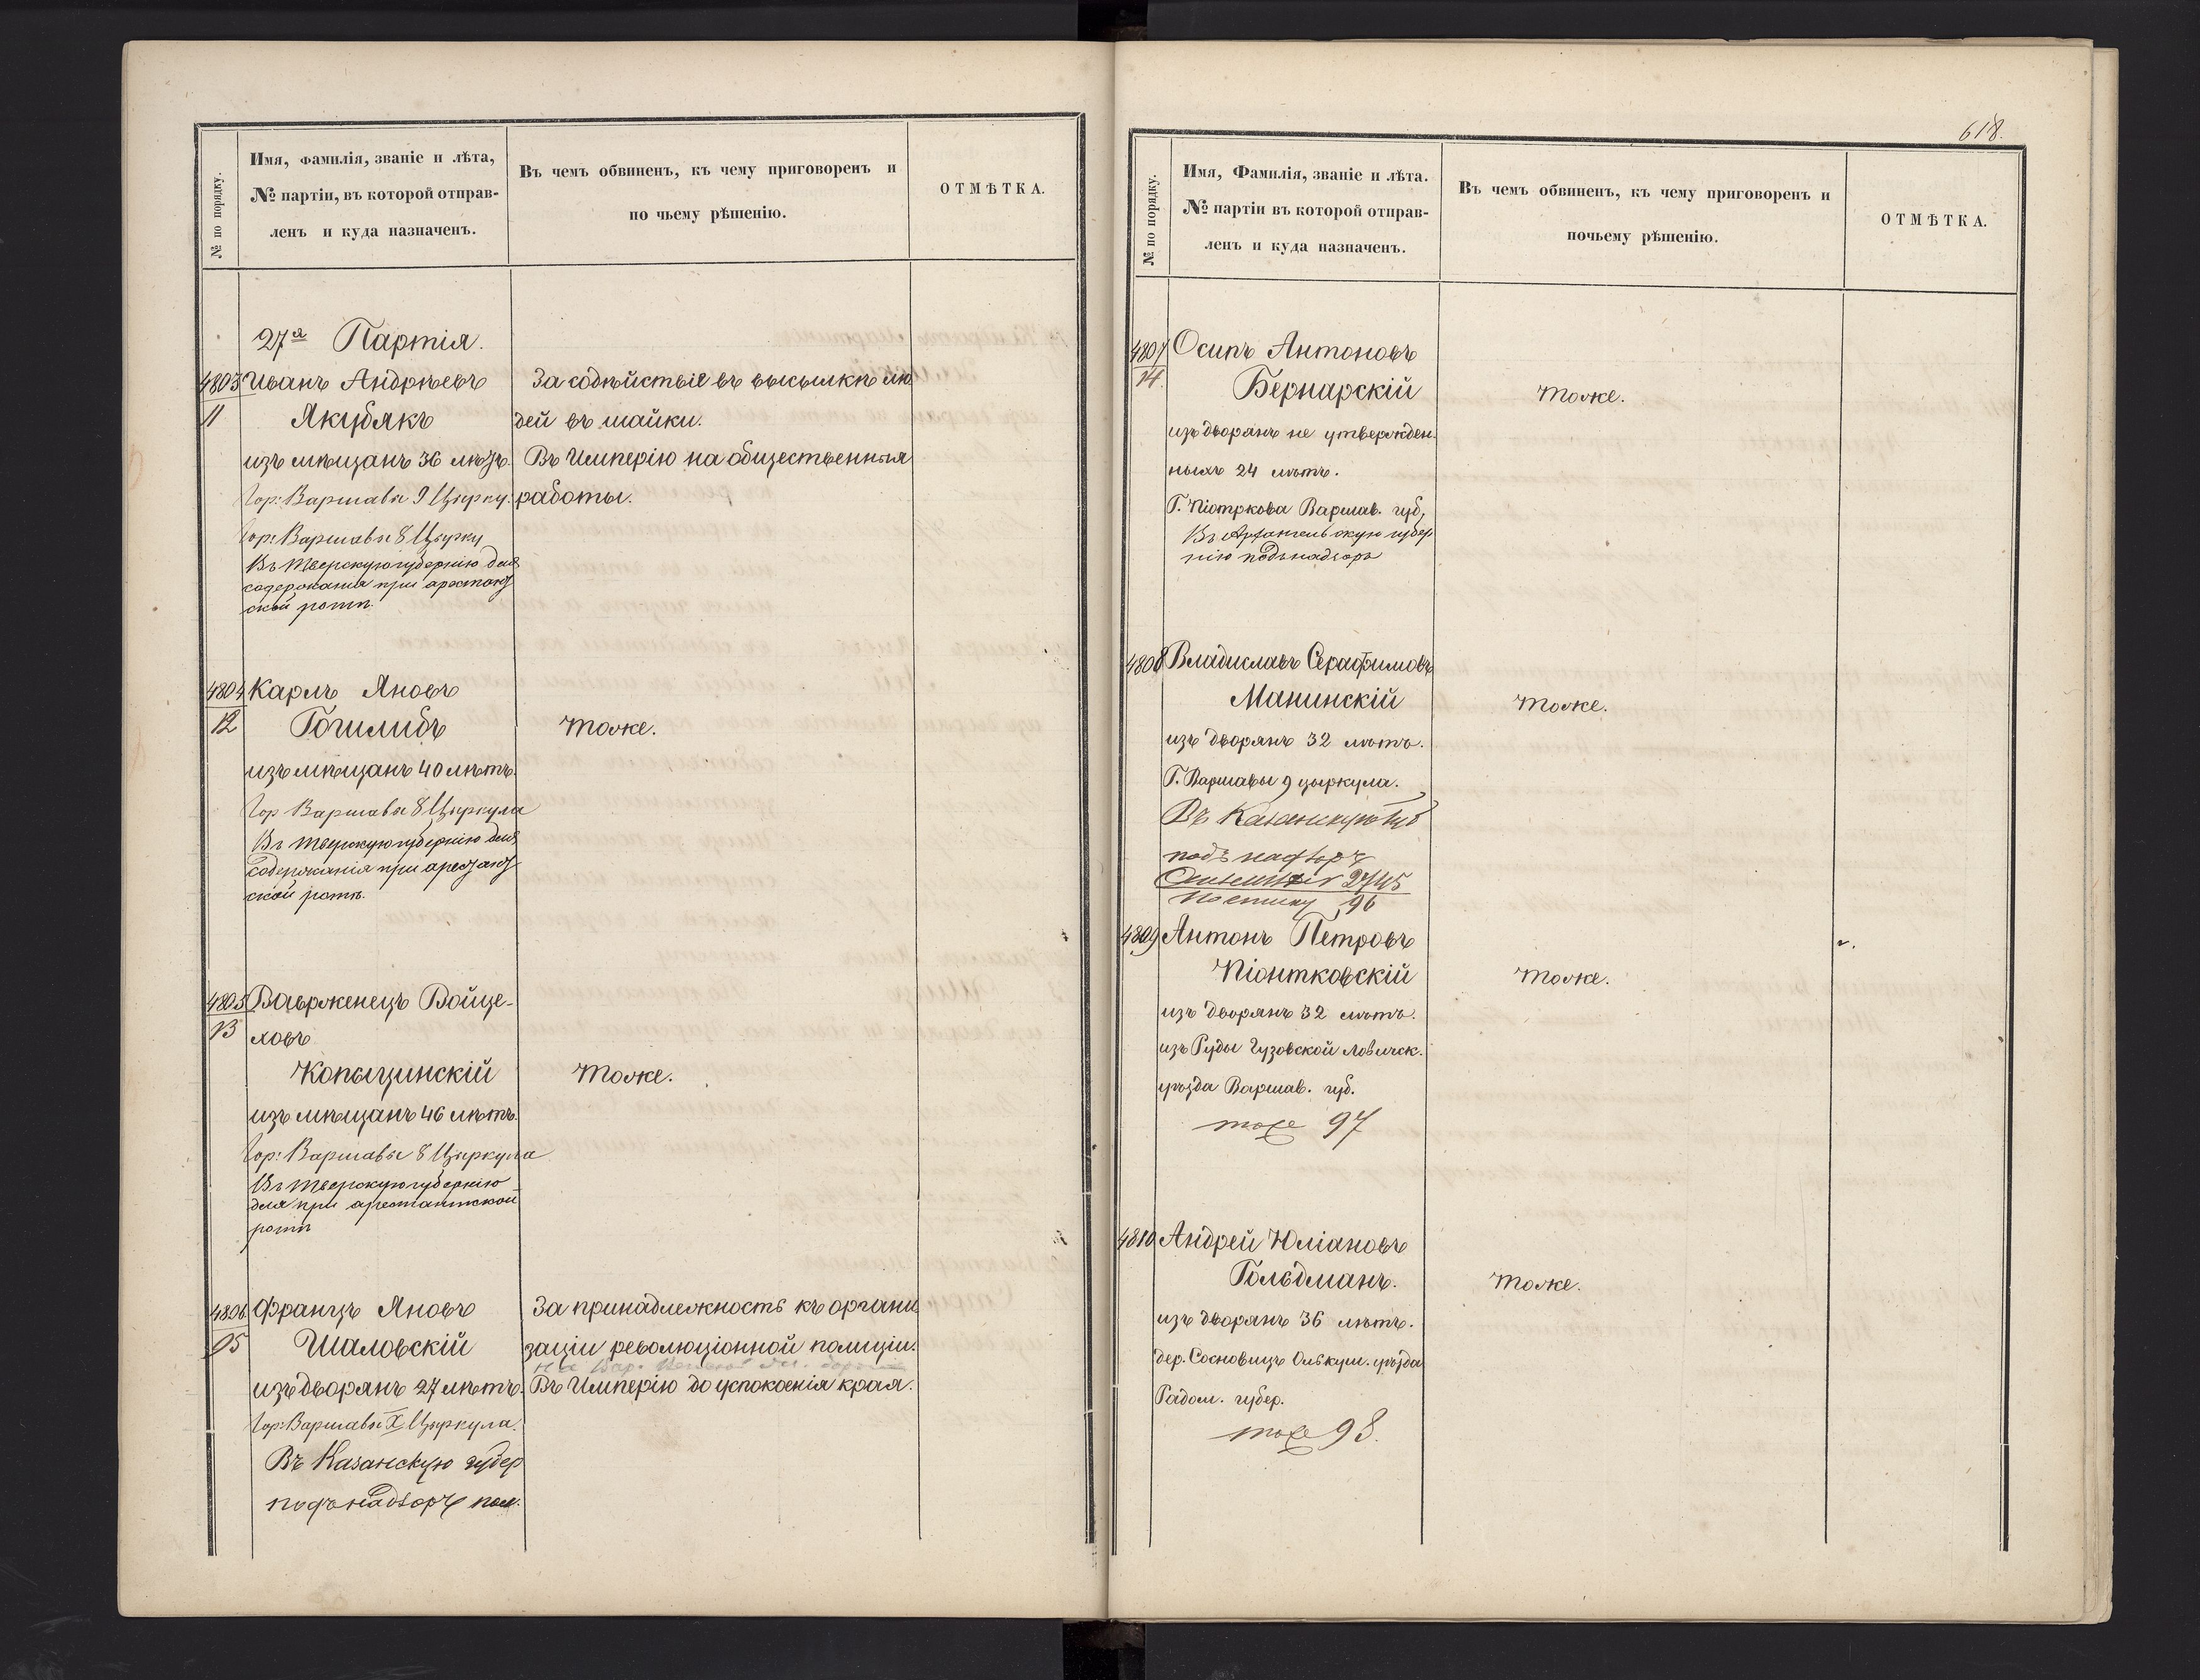 № по порядку.
Имя, Фамилія, званіе и лѣта,
№ партіи, въ которой отправ-
ленъ и куда назначенъ.
Въ чемъ обвиненъ, къ чему приговоренъ и
по чьему рѣшенію.
ОТМѢТКА.
27я Партія.
4803
11
Иванъ Андрѣевъ
Якубякъ
изъ мѣщанъ 36 лѣтъ.
Гор: Варшавы 9 Цырку.
Гор: Варшавы 8 Цырку
Въ Тверскую губернію для
содержанія при арестант
ской ротѣ.
За содѣйствіе въ высылкѣ лю
дей въ шайки.
Въ Имперію на общественныя
работы.
4804
12
Карлъ Яновъ
Готилибъ
изъ мѣщанъ 40 лѣтъ.
Гор Варшавы 8 Цыркула
Въ Тверскую губернію для
содержанія при арестант
ской ротѣ.
тоже.
4805
13
Ваврженецъ Войце-
ховъ
Копыщинскій
изъ мѣщанъ 46 лѣтъ.
Гор: Варшавы 8 Цыркула
Въ Тверскую губернію
для при арестантской
ротѣ
тоже.
4806
95
Францъ Яновъ
Шаловскій
изъ дворянъ 27 лѣтъ.
Гор: Варшавы X Цыркула.
Въ Казанскую губер
подъ надзоръ пол.
За принадлежность къ органи
заціи революціонной полиціи.
Въ Имперію до успокоенія края.
618.
№ по порядку.
Имя, Фамилія, званіе и лѣта.
№ партіи въ которой отправ-
ленъ и куда назначенъ.
Въ чемъ обвиненъ, къ чему приговоренъ и
почьему рѣшенію.
ОТМѢТКА.
4807
14.
Осипъ Антоновъ
Бернарскій
изъ дворянъ не утвержден.
ныхъ 24 лѣтъ.
Г. Піотркова Варшав. губ,
Въ Архангельскую губер
нію подъ надзоръ
тоже.
4808
Владиславъ Серафимовъ
Манинскій
изъ дворянъ 32 лѣтъ.
Г. Варшавы 9 цыркула.
Въ Казанскую губ
подъ надзоръ
2745
96
тоже.
4809
Антонъ Петровъ
Піонтковскій
изъ дворянъ 32 лѣтъ.
изъ Руды Гузовской Ловичск.
уѣзда Варшав. губ.
тоже 97
тоже.
4810
Андрей Юліановъ
Гольдманъ.
изъ дворянъ 36 лѣтъ.
дер. Сосновицъ Олькуш. уѣзда
Радом. губер.
тоже 98.
тоже.